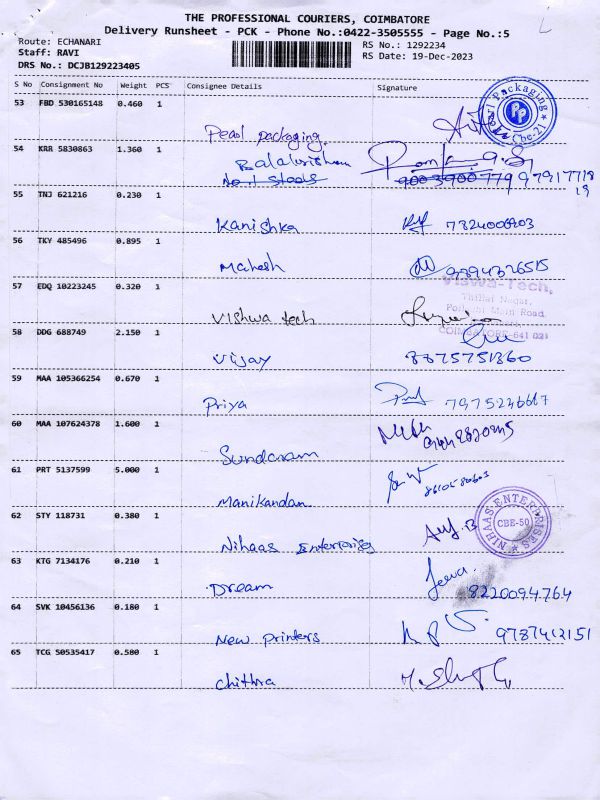 THE PROFESSIONAL COURIERS, COIMBATORE
Delivery Runsheet - PCK - Phone No.:0422-3505555 - Page No.:5
Route: ECHANARI
RS No.: 1292234
Staff: RAVI
RS Date: 19-Dec-2023
DRS No.: DCJB129223405
S No Consignment No Weight PCS Consignee Details Signature
53 FBD 530165148 0.460 1
Pearl packaging
Pearl Packaging
PP
Cbe.21
54 KRR 5830863 1.360 1
Balakrishnan
55 TNJ 621216 0.230 1
Kanishka
56 TKY 485496 0.895 1
Mahesh 9894326515
57 EDQ 10223245 0.320 1
Vishwa tech
Viswa-Tech,
Thillai Nagar,
Main Road,
COIMBATORE-641 021
58 DDG 688749 2.150 1
Vijay 8875751360
59 MAA 105366254 0.670 1
Priya
60 MAA 107624378 1.600 1
Sundaram
61 PRT 5137599 5.000 1
Manikandan
62 STY 118731 0.380 1
Nihaas Enterprises
NIHAAS ENTERPRISES
CBE-50
63 KTG 7134176 0.210 1
Dream 8220094764
64 SVK 10456136 0.180 1
New printers 9787412151
65 TCG 50535417 0.580 1
Chithra